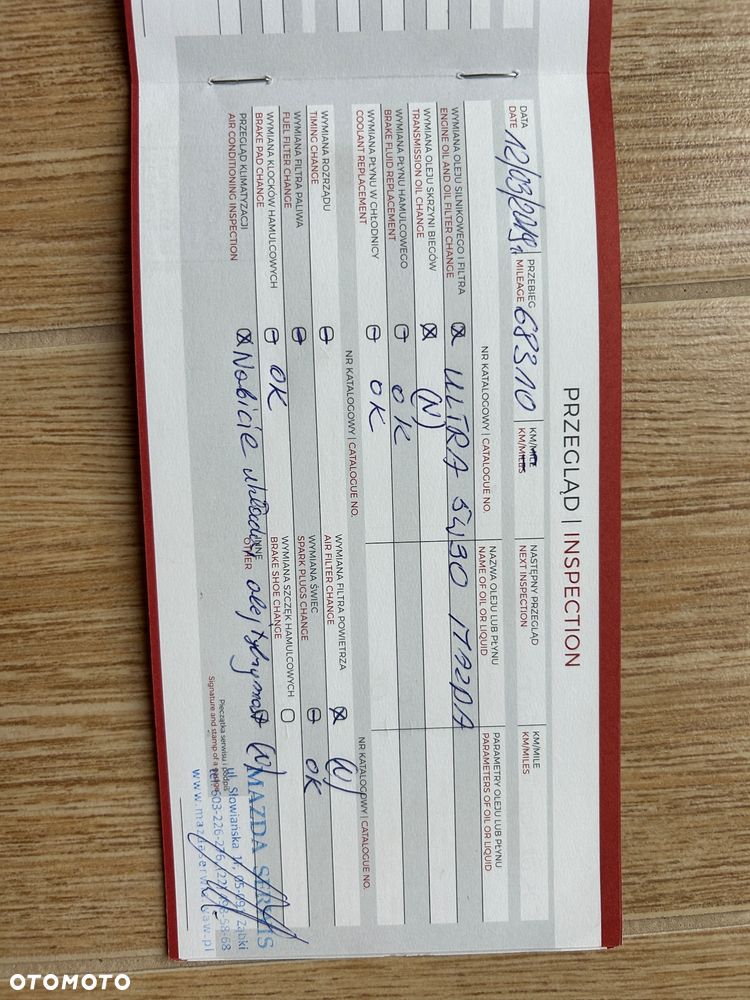 PRZEGLĄD | INSPECTION
DATA
DATE
12/03/2019
PRZEBIEG
MILEAGE
68310
KM/MILE
KM/MILES
NASTĘPNY PRZEGLĄD
NEXT INSPECTION
KM/MILE
KM/MILES
NR KATALOGOWY | CATALOGUE NO.
NAZWA OLEJU LUB PŁYNU
NAME OF OIL OR LIQUID
PARAMETRY OLEJU LUB PŁYNU
PARAMETERS OF OIL OR LIQUID
WYMIANA OLEJU SILNIKOWEGO I FILTRA
ENGINE OIL AND OIL FILTER CHANGE
ULTRA 5W30 MAZDA
WYMIANA OLEJU SKRZYNI BIEGÓW
TRANSMISSION OIL CHANGE
(N)
WYMIANA PŁYNU HAMULCOWEGO
BRAKE FLUID REPLACEMENT
OK
WYMIANA PŁYNU W CHŁODNICY
COOLANT REPLACEMENT
OK
NR KATALOGOWY | CATALOGUE NO.
NR KATALOGOWY | CATALOGUE NO.
WYMIANA ROZRZĄDU
TIMING CHANGE
WYMIANA FILTRA POWIETRZA
AIR FILTER CHANGE
(N)
WYMIANA FILTRA PALIWA
FUEL FILTER CHANGE
WYMIANA ŚWIEC
SPARK PLUGS CHANGE
OK
WYMIANA KLOCKÓW HAMULCOWYCH
BRAKE PAD CHANGE
OK
WYMIANA SZCZĘK HAMULCOWYCH
BRAKE SHOE CHANGE
PRZEGLĄD KLIMATYZACJI
AIR CONDITIONING INSPECTION
INNE
OTHER
Nabicie układu, olej (N)
Pieczątka serwisu i podpis
Signature and stamp of a
MAZDA SERWIS
ul. Słowiańska Ząbki
tel. 603-226-276
OTOMOTO